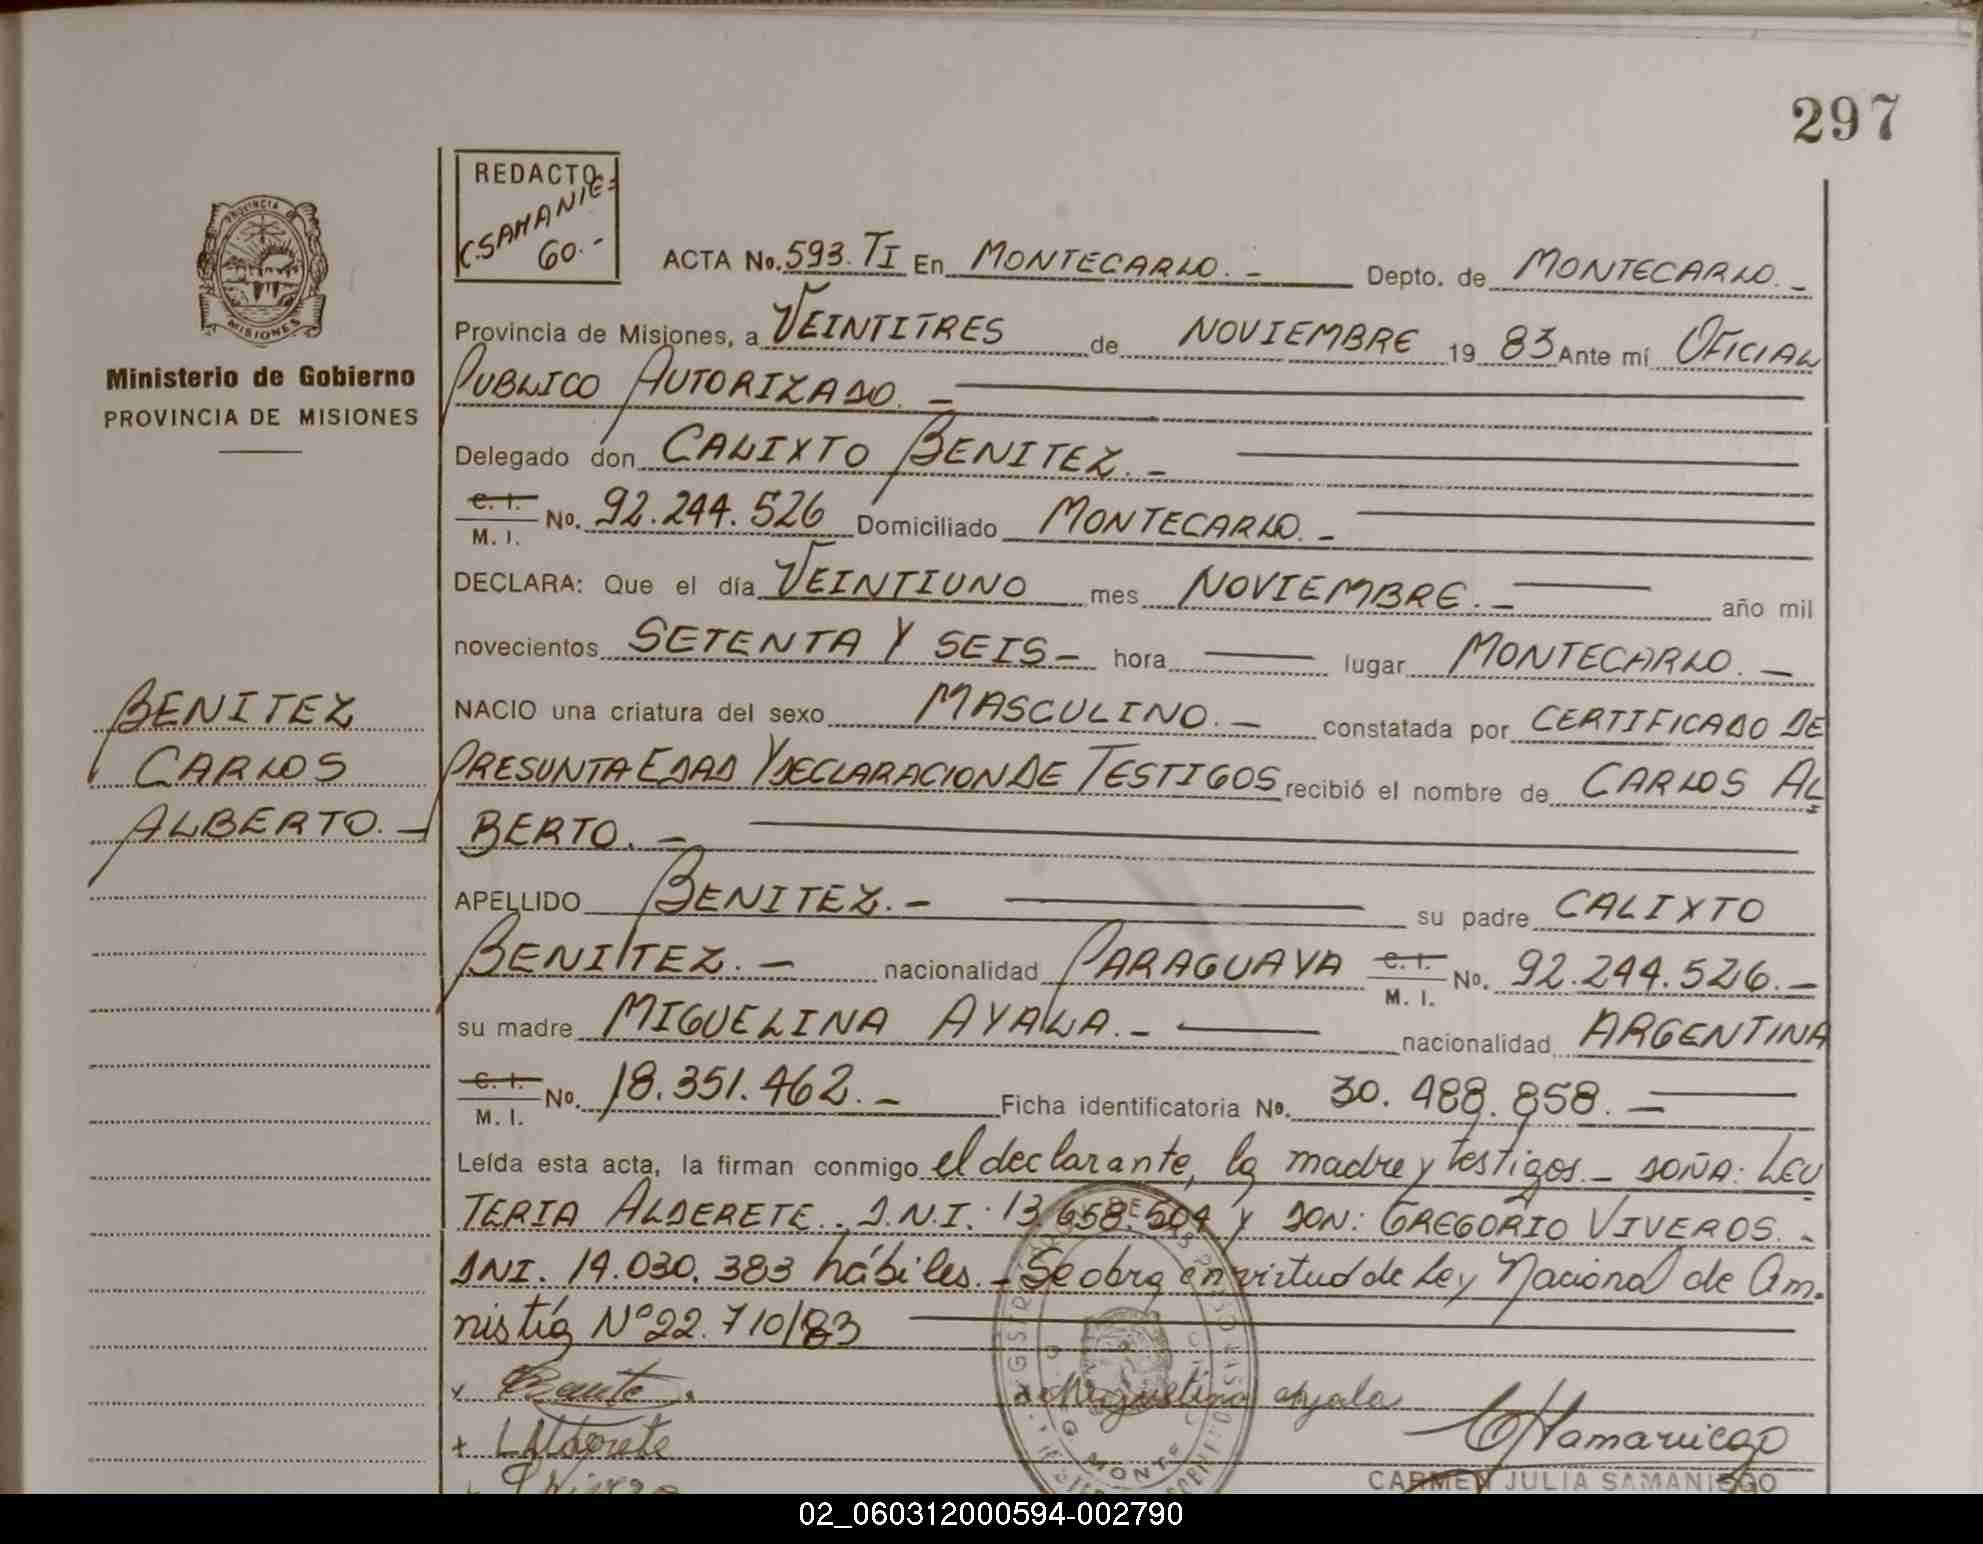 297
REDACTO
C.SAMANIE=
GO.-
ACTA No. 593. TI En MONTECARLO. - Depto. de MONTECARLO. -
PROVINCIA DE
MISIONES
Provincia de Misiones, a VEINTITRES de NOVIEMBRE 19 83 Ante mí OFICIAL
Ministerio de Gobierno
PROVINCIA DE MISIONES
PUBLICO AUTORIZADO. -
Delegado don CALIXTO BENITEZ. -
C. I.
M. I. No. 92.244.526 Domiciliado MONTECARLO. -
DECLARA: Que el día VEINTIUNO mes NOVIEMBRE. - año mil
novecientos SETENTA Y SEIS - hora lugar MONTECARLO. -
BENITEZ
CARLOS
ALBERTO. -
NACIO una criatura del sexo MASCULINO. - constatada por CERTIFICADO DE
PRESUNTA EDAD Y DECLARACION DE TESTIGOS recibió el nombre de CARLOS AL
BERTO. -
APELLIDO BENITEZ. - su padre CALIXTO
BENITEZ. - nacionalidad PARAGUAYA C. I.
M. I. No. 92.244.526. -
su madre MIGUELINA AYALA. - nacionalidad ARGENTINA
C. I.
M. I. No. 18.351.462. - Ficha identificatoria No. 30. 488. 858. -
Leída esta acta, la firman conmigo el declarante, la madre y testigos. - DOÑA: LEU
TERIA ALDERETE. D.N.I.: 13.658.504 y DON: GREGORIO VIVEROS. -
DNI. 14.030.383 hábiles. - Se obra en virtud de Ley Nacional de Am.
nistía Nº 22.710/83
Miguelina Ayala
CARMEN JULIA SAMANIEGO
02_060312000594-002790